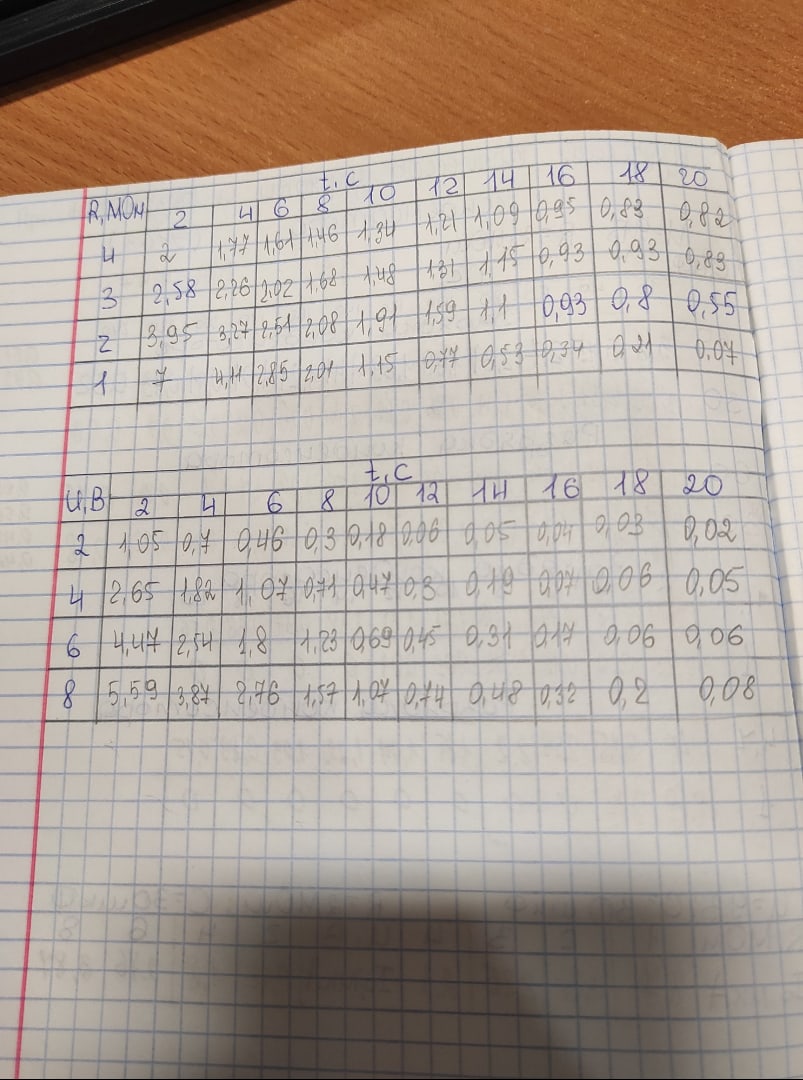 t, c
R, МОм 2 4 6 8 10 12 14 16 18 20
4 2 1,77 1,61 1,46 1,34 1,21 1,09 0,95 0,83 0,82
3 2,58 2,26 2,02 1,68 1,48 1,31 1,15 0,93 0,93 0,83
2 3,95 3,27 2,51 2,08 1,91 1,59 1,1 0,93 0,8 0,55
1 7 4,11 2,85 2,01 1,15 0,77 0,53 0,34 0,21 0,07
t, c
U, В 2 4 6 8 10 12 14 16 18 20
2 1,05 0,7 0,46 0,3 0,18 0,06 0,05 0,04 0,03 0,02
4 2,65 1,82 1,07 0,71 0,47 0,3 0,19 0,07 0,06 0,05
6 4,47 2,54 1,8 1,23 0,69 0,45 0,31 0,17 0,06 0,06
8 5,59 3,87 2,76 1,57 1,07 0,74 0,48 0,32 0,2 0,08